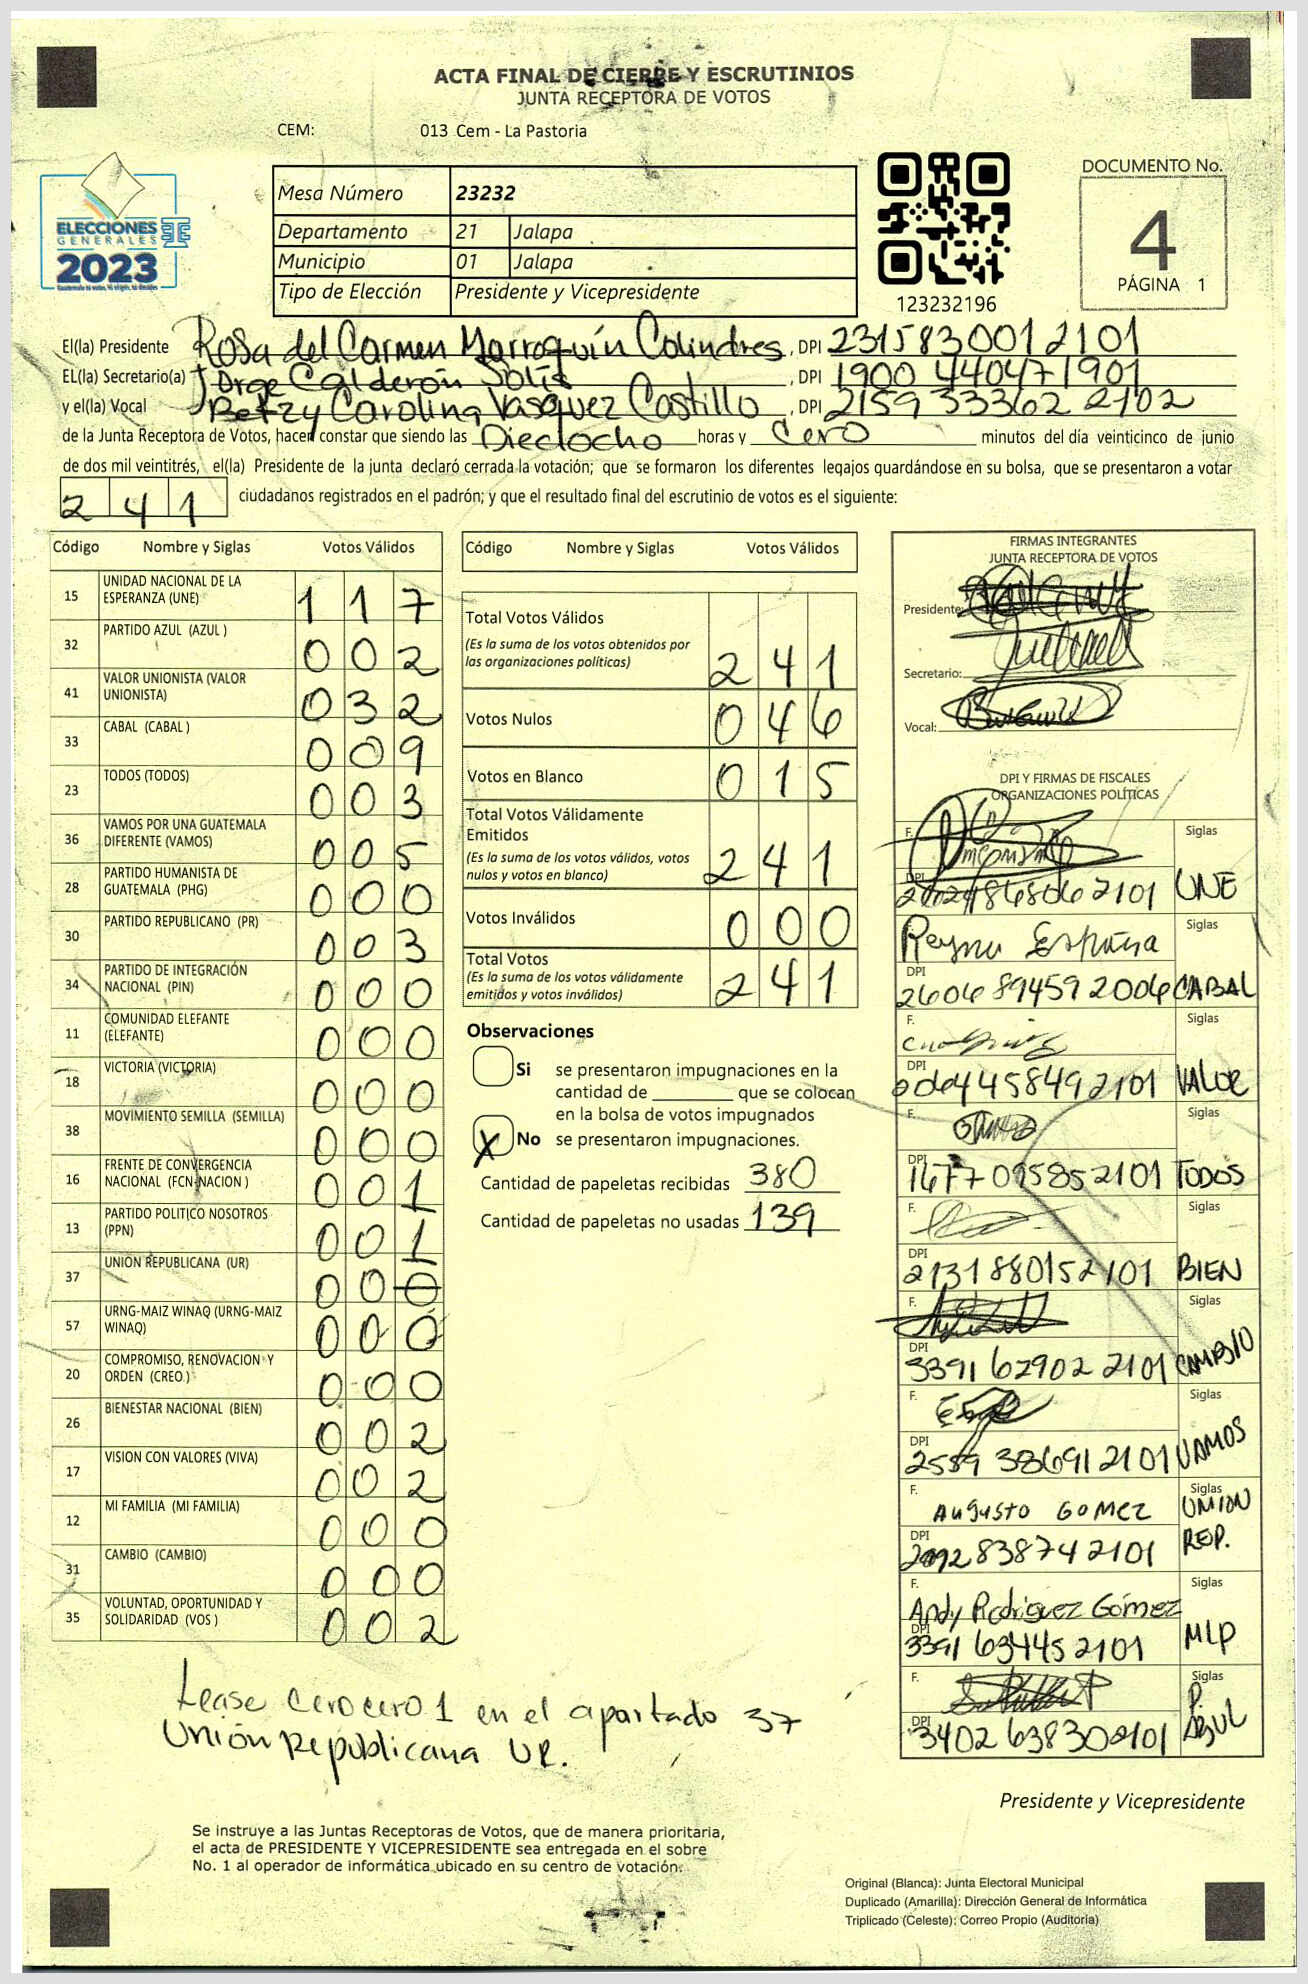 ACTA FINAL DE CIERRE Y ESCRUTINIOS
JUNTA RECEPTORA DE VOTOS
CEM: 013 Cem - La Pastoria
ELECCIONES
GENERALES
2023
Mesa Número 23232
Departamento 21 Jalapa
Municipio 01 Jalapa
Tipo de Elección Presidente y Vicepresidente
123232196
DOCUMENTO No.
4
PÁGINA 1
El(la) Presidente Rosa del Carmen Marroquín Colindres, DPI 231583001 2101
EL(la) Secretario(a) Jorge Calderón Solís, DPI 1900 44047 1901
y el(la) Vocal Betzy Carolina Vasquez Castillo, DPI 2159 33362 2102
de la Junta Receptora de Votos, hacen constar que siendo las Dieciocho horas y cero minutos del día veinticinco de junio
de dos mil veintitrés, el(la) Presidente de la junta declaró cerrada la votación; que se formaron los diferentes legajos guardándose en su bolsa, que se presentaron a votar
241 ciudadanos registrados en el padrón; y que el resultado final del escrutinio de votos es el siguiente:
Código Nombre y Siglas Votos Válidos
15 UNIDAD NACIONAL DE LA ESPERANZA (UNE) 117
32 PARTIDO AZUL (AZUL ) 002
41 VALOR UNIONISTA (VALOR UNIONISTA) 032
33 CABAL (CABAL ) 009
23 TODOS (TODOS) 003
36 VAMOS POR UNA GUATEMALA DIFERENTE (VAMOS) 005
28 PARTIDO HUMANISTA DE GUATEMALA (PHG) 000
30 PARTIDO REPUBLICANO (PR) 003
34 PARTIDO DE INTEGRACIÓN NACIONAL (PIN) 000
11 COMUNIDAD ELEFANTE (ELEFANTE) 000
18 VICTORIA (VICTORIA) 000
38 MOVIMIENTO SEMILLA (SEMILLA) 000
16 FRENTE DE CONVERGENCIA NACIONAL (FCN-NACION ) 001
13 PARTIDO POLITICO NOSOTROS (PPN) 001
37 UNION REPUBLICANA (UR) 000
57 URNG-MAIZ WINAQ (URNG-MAIZ WINAQ) 000
20 COMPROMISO, RENOVACION Y ORDEN (CREO ) 000
26 BIENESTAR NACIONAL (BIEN) 002
17 VISION CON VALORES (VIVA) 002
12 MI FAMILIA (MI FAMILIA) 000
31 CAMBIO (CAMBIO) 000
35 VOLUNTAD, OPORTUNIDAD Y SOLIDARIDAD (VOS ) 002
Código Nombre y Siglas Votos Válidos
Total Votos Válidos
(Es la suma de los votos obtenidos por
las organizaciones políticas) 241
Votos Nulos 046
Votos en Blanco 015
Total Votos Válidamente
Emitidos
(Es la suma de los votos válidos, votos
nulos y votos en blanco) 241
Votos Inválidos 000
Total Votos
(Es la suma de los votos válidamente
emitidos y votos inválidos) 241
Observaciones
Si se presentaron impugnaciones en la
cantidad de ________ que se colocan
en la bolsa de votos impugnados
X No se presentaron impugnaciones.
Cantidad de papeletas recibidas 380
Cantidad de papeletas no usadas 139
FIRMAS INTEGRANTES
JUNTA RECEPTORA DE VOTOS
Presidente:
Secretario:
Vocal:
DPI Y FIRMAS DE FISCALES
ORGANIZACIONES POLÍTICAS
F. Siglas
DPI UNE
Reyna España Siglas
DPI 2606 89459 2006 CABAL
F. Siglas
DPI VALOR
F. Siglas
DPI 1677 09585 2101 TODOS
F. Siglas
DPI 2131 88015 2101 BIEN
F. Siglas
DPI 3391 62902 2101 CAMBIO
F. Siglas
DPI 2559 38691 2101 VAMOS
F. Augusto Gomez Siglas UNION
DPI REP.
F. Andy Rodriguez Gómez Siglas
DPI 3391 63445 2101 MLP
F. Siglas P.
DPI AZUL
Lease cero cero 1 en el apartado 37
Unión Republicana UR.
Presidente y Vicepresidente
Se instruye a las Juntas Receptoras de Votos, que de manera prioritaria,
el acta de PRESIDENTE Y VICEPRESIDENTE sea entregada en el sobre
No. 1 al operador de informática ubicado en su centro de votación.
Original (Blanca): Junta Electoral Municipal
Duplicado (Amarilla): Dirección General de Informática
Triplicado (Celeste): Correo Propio (Auditoría)